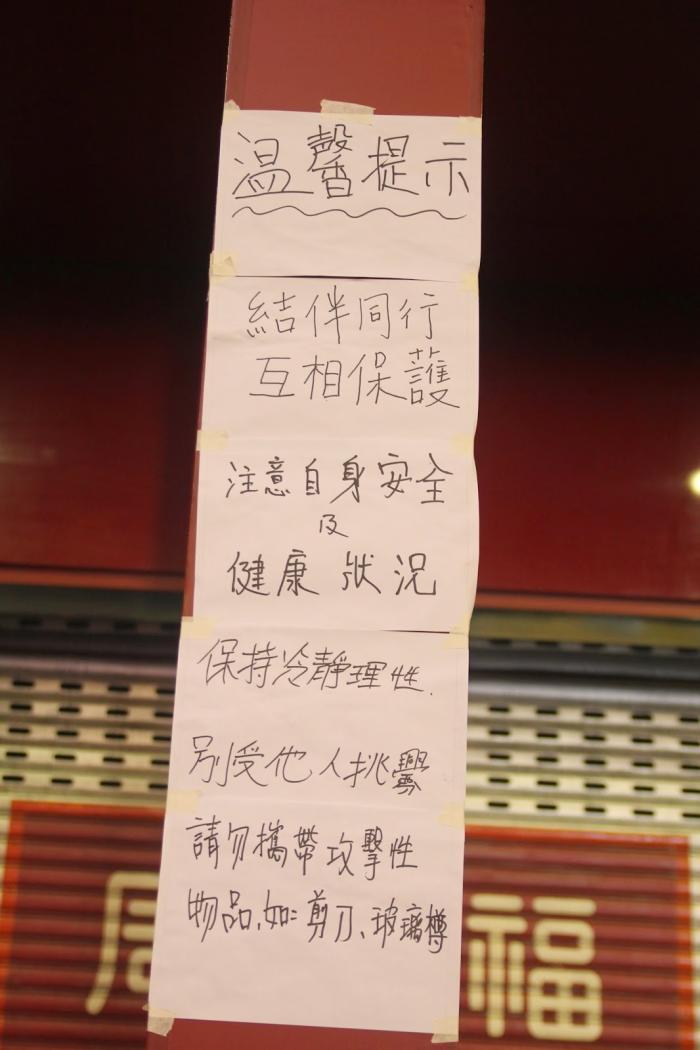 溫馨提示
結伴同行
互相保護
注意自身安全
及
健康狀況
保持冷靜理性.
別受他人挑釁
請勿攜帶攻擊性
物品,如:剪刀、玻璃樽
周
福